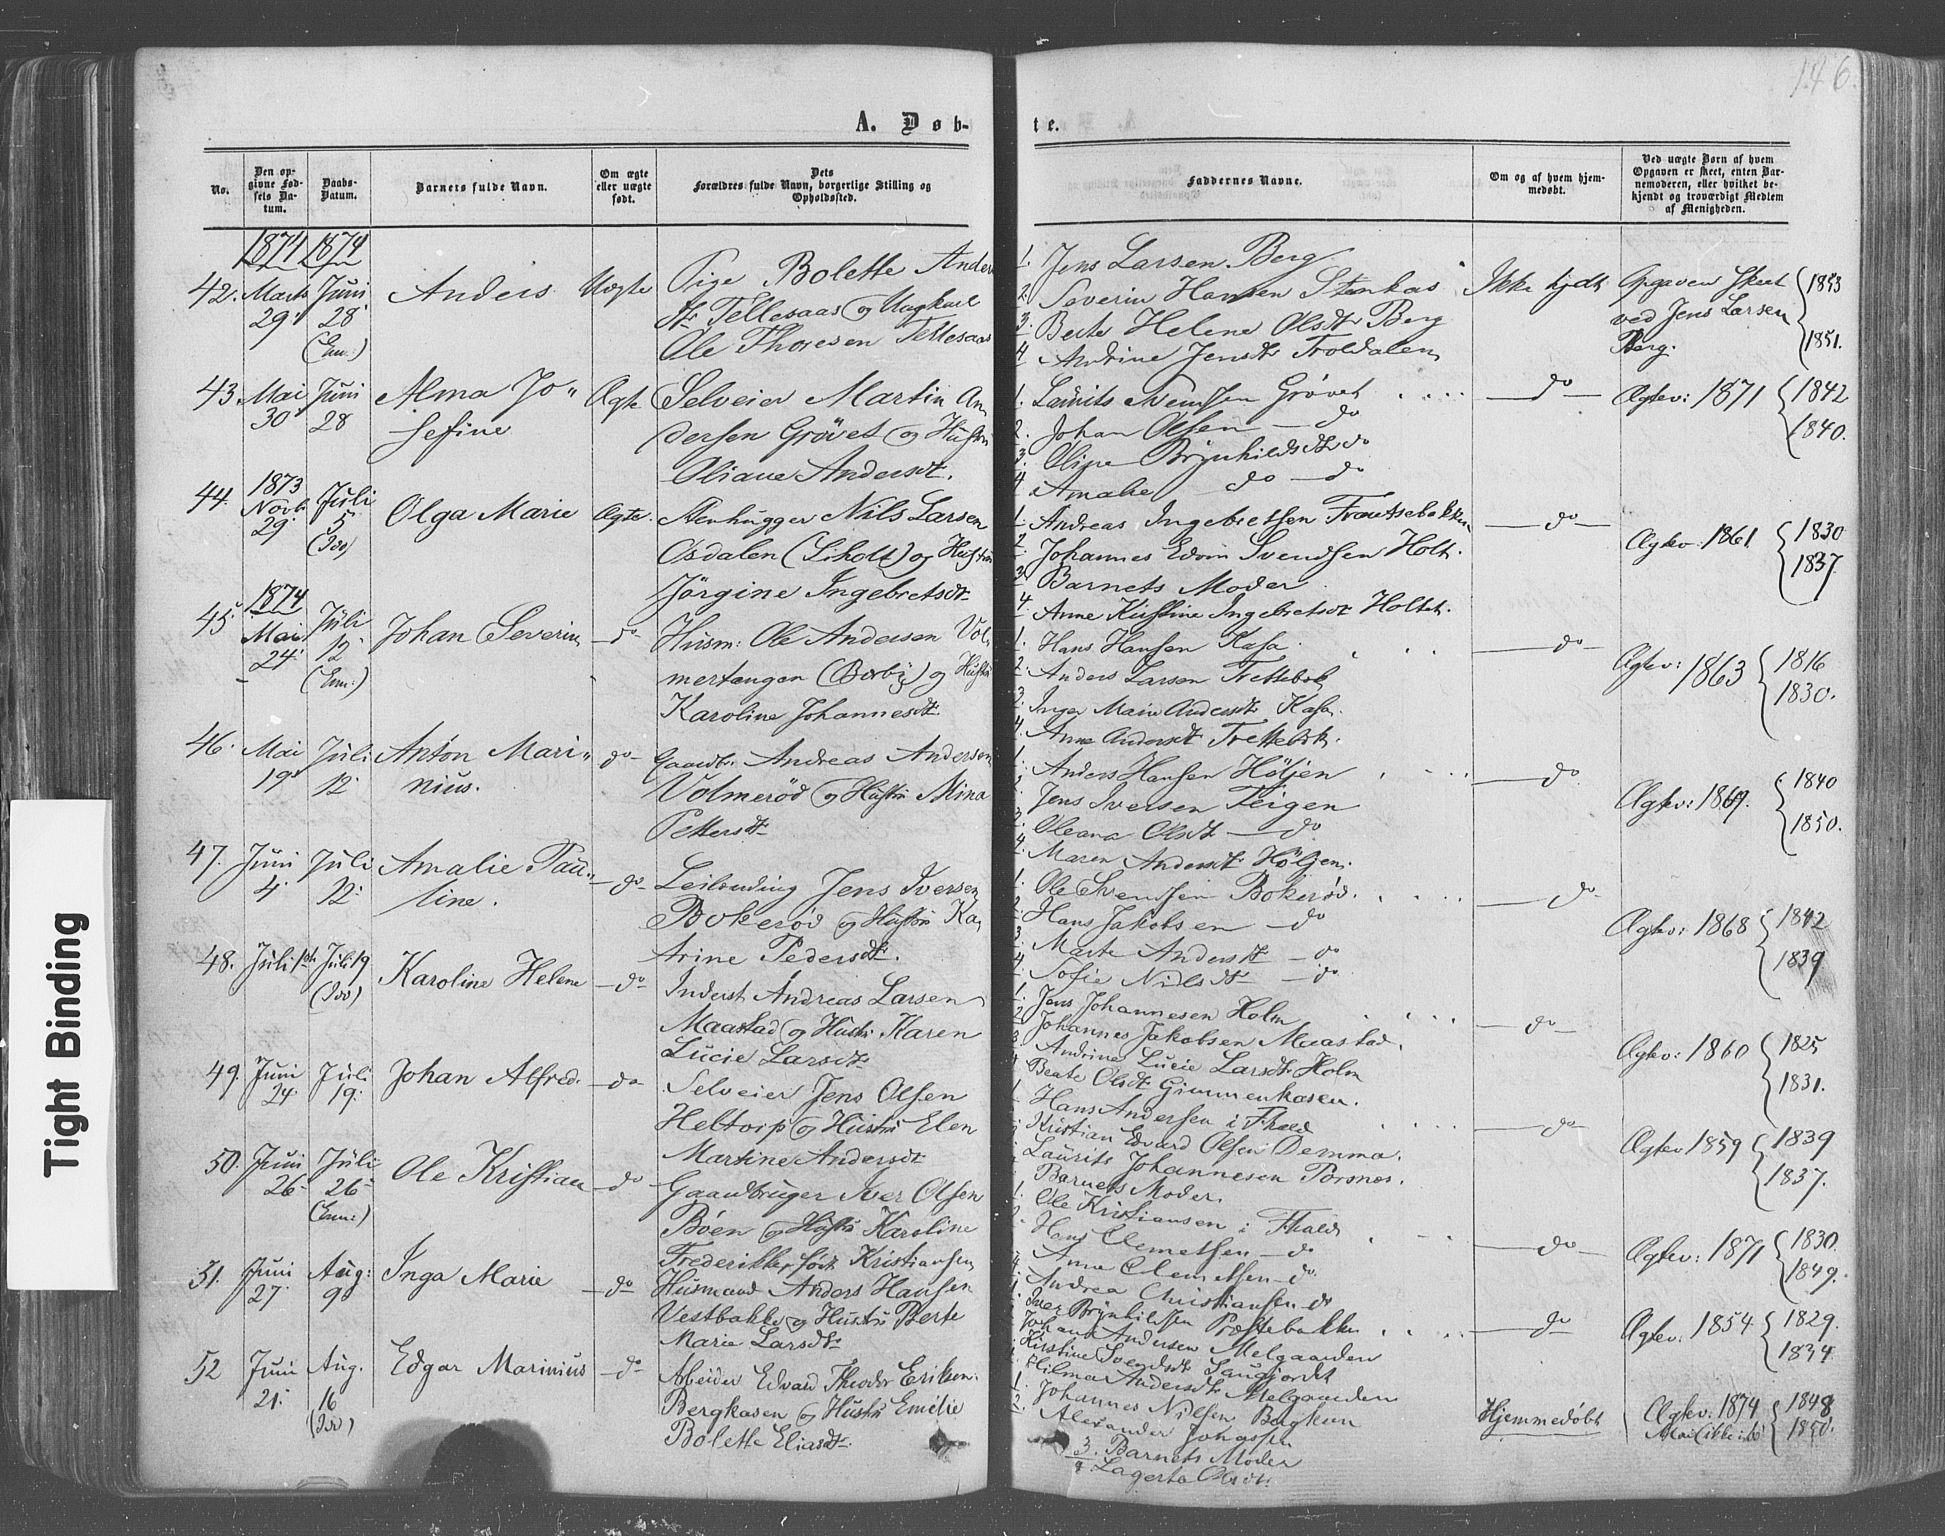 146.
A. Døb-
te.
No.
Den op-
givne Fød-
sels Da-
tum.
Daabs-
Datum.
Barnets fulde Navn.
Om ægte
eller uægte
født.
Dets
Forældres fulde Navn, borgerlige Stilling og
Opholdssted.
Faddernes Navne.
Om og af hvem hjem-
medøbt.
Ved uægte Børn af hvem
Opgaven er skeet, enten Bar-
nemoderen, eller hvilket be-
kjendt og troværdigt Medlem
af Menigheden.
1874 1874
42. Marts 29. Juni 28 (Enn:) Anders Uægte
Pige Bolette Anders
dtr Tellesaas og Ungkarl
Ole Thoresen Tellesaas
1. Jens Larsen Berg
2. Severin Hansen Stenkas
3. Berte Helene Olsdtr Berg
4. Andrine Jensdtr Troldalen
Ikke hjdt
Opgaven skeet
ved Jens Larsen
Berg.
1853
1851.
43. Mai 30 Juni 28 Alma Jo-
sefine Ægte
Selveier Martin An
dersen Grövet og Hustru
Oliane Andersdt.
1. Lauritz Svensen Grövet
2. Johan Olsen do
3. Oline Brynhildsdtr do
4. Amalie do do
do
Ægtev: 1871 1842
1840.
44. 1873 Novb. 29. Juli 5 (Ido) Olga Marie Ægte.
Stenhugger Nils Larsen
Osdalen (Liholt) og Hustru
Jörgine Ingebretsdt
1. Andreas Ingebretsen Frautsebakken
2. Johannes Edvin Svendsen Holt.
3. Barnets Moder
4. Anne Kirstine Ingebretsdt Holtet.
do
Ægtev: 1861 1830
1837.
45. 1874 Mai 24. Juli 12 (Enn:) Johan Severin do
Husm: Ole Andersen Vol
mertangen (Borby) og Hustru
Karoline Johannesdt.
1. Hans Hansen Kasa
2. Anders Larsen Trettebok
3. Inger Marie Andersdt Kasa.
4. Anne Andersdt Trettebok.
do
Ægtev: 1863 1816
1830.
46. Mai 19. Juli 12. Anton Mari-
nius. do
Gaardbr. Andreas Andersen
Volmeröd og Hustru Mina
Pettersdt
1. Anders Hansen Höljen
2. Jens Iversen Teigen
3. Oleana Olsdt do
4. Maren Andersdt Höljen.
do
Ægtev: 1869. 1840
1850.
47. Juni 4. Juli 12. Amalie Pau-
line. do
Leilending Jens Iversen
Bokeröd og Hustru Ka
trine Pedersdt.
1. Ole Svendsen Bokeröd.
2. Hans Jakobsen do
3. Marte Andersdt do
4. Sofie Nilsdt do
do
Ægtev: 1868 1842
1839
48. Juli 1ste Juli 19 (Ido) Karoline Helene do
Inderst Andreas Larsen
Maastad og Hustru Karen
Lucie Larsdt.
1. Jens Johannesen Holm
2. Johannes Jakobsen Maastad.
3. Andrine Lucie Larsdt Holm
4. Beate Olsdt Gimmenkasen.
do
Ægtev: 1860 1825
1831.
49. Juni 24. Juli 19. Johan Alfred. do
Selveier Jens Olsen
Heltorp og Hustru Elen
Martine Andersdt
1. Hans Andersen i Fhald
Kristian Edvard Olsen Demma.
Laurits Johannesen Torsnes.
Barnets Moder.
do
Ægtev 1859 1839
1837.
50. Juni 26. Juli 26 (Enn:) Ole Kristian do
Gaardbruger Iver Olsen
Böen og Hustru Karoline
Frederikke, föd Kristiansen
1. Ole Kristiansen i Fhald
Hans Clemetsen do
Anne Clemetsen do
Andrea Christiansen do
do
Ægtev: 1871 1830.
1849.
51. Juni 27. Aug: 9 Inga Marie do
Husmand Anders Hansen
Vestbakke og Hustru Berte
Marie Larsdt.
Iver Brynhildsen Præstebakke
Johan Andersen Melgaarden
Kirstine Svendsdt Saugjordet
Hilma Andersdt Melgaarden
do
Ægtev: 1854 1829.
1834.
52 Juni 21. Aug. 16 (Ido) Edgar Marinius do
Arbeider Edvard Theodor Eriksen
Bergkasen og Hustru Emilie
Bolette Eliasdt.
1. Johannes Nilsen Bergkum
2. Alexander Johansen
3. Barnets Moder
4. Lagerta Olsdt.
Hjemmedøbt
Ægtev: 1874
1848
1850.
Tight Binding